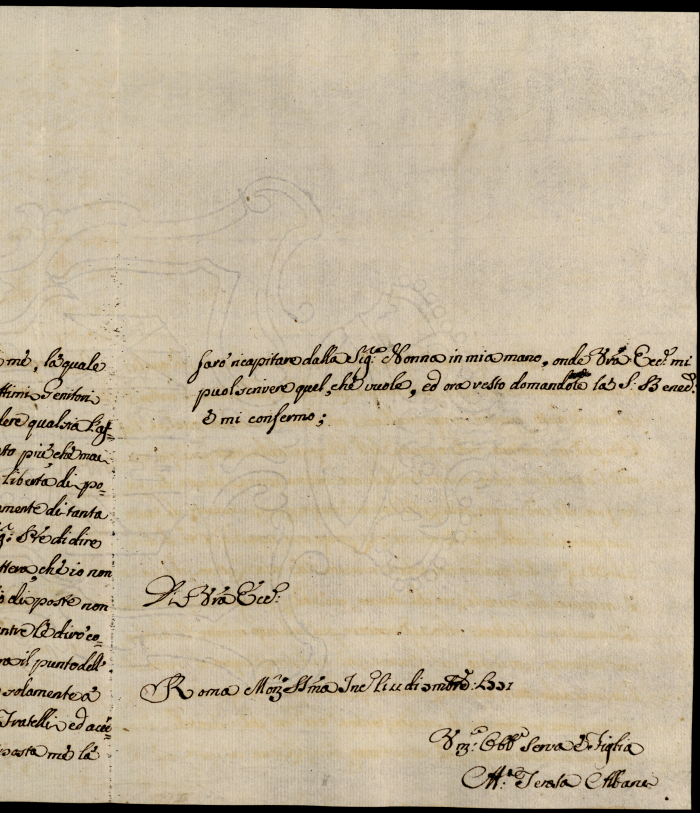 mè, la quale
ttimi Genitori
dere qualsia lig=
sto più chè mai
libertà di po=
amente di tanta
di dire
ttera, chè io non
di poste non
ntre le dirò co=
ra il punto dell'
solamente à
Fratelli, ed acci=
posta mè là
farò ricapitare dalla Sig:ra Nonna in mia mano, onde Vrã Ecc:a mi
puol scrivere quel, chè vuole, ed ora resto domandole la S: Bened:
è mi confermo;
Di Vrã Ecc:a
Roma
Serva è Figlia
Teresa Albani